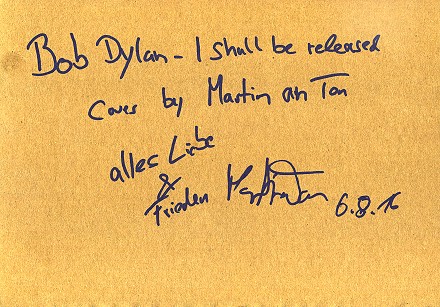 Bob Dylan - I shall be released
Cover by Martin an Ton
alles Liebe
&
Frieden
6.8.16